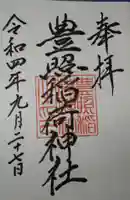 奉拝
豊照稲荷神社
令和四年九月二十七日